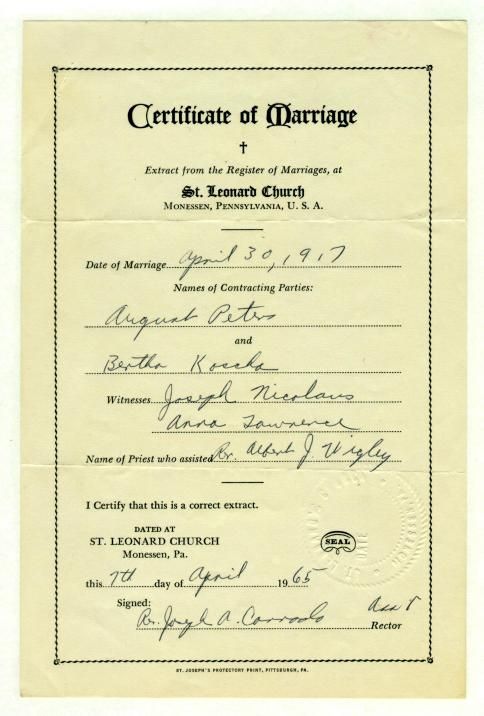 Certificate of Marriage
†
Extract from the Register of Marriages, at
St. Leonard Church
MONESSEN, PENNSYLVANIA, U. S. A.
Date of Marriage April 30, 1917
Names of Contracting Parties:
August Peters
and
Bertha Koscha
Witnesses Joseph Nicolaus
Anna Lawrence
Name of Priest who assisted Rv. Albert J. Wigley
I Certify that this is a correct extract.
DATED AT
ST. LEONARD CHURCH
Monessen, Pa.
SEAL
this 7th day of April 1965
Signed:
Rv. Joseph A. Ass't
Rector
ST. JOSEPH'S PROTECTORY PRINT, PITTSBURGH, PA.